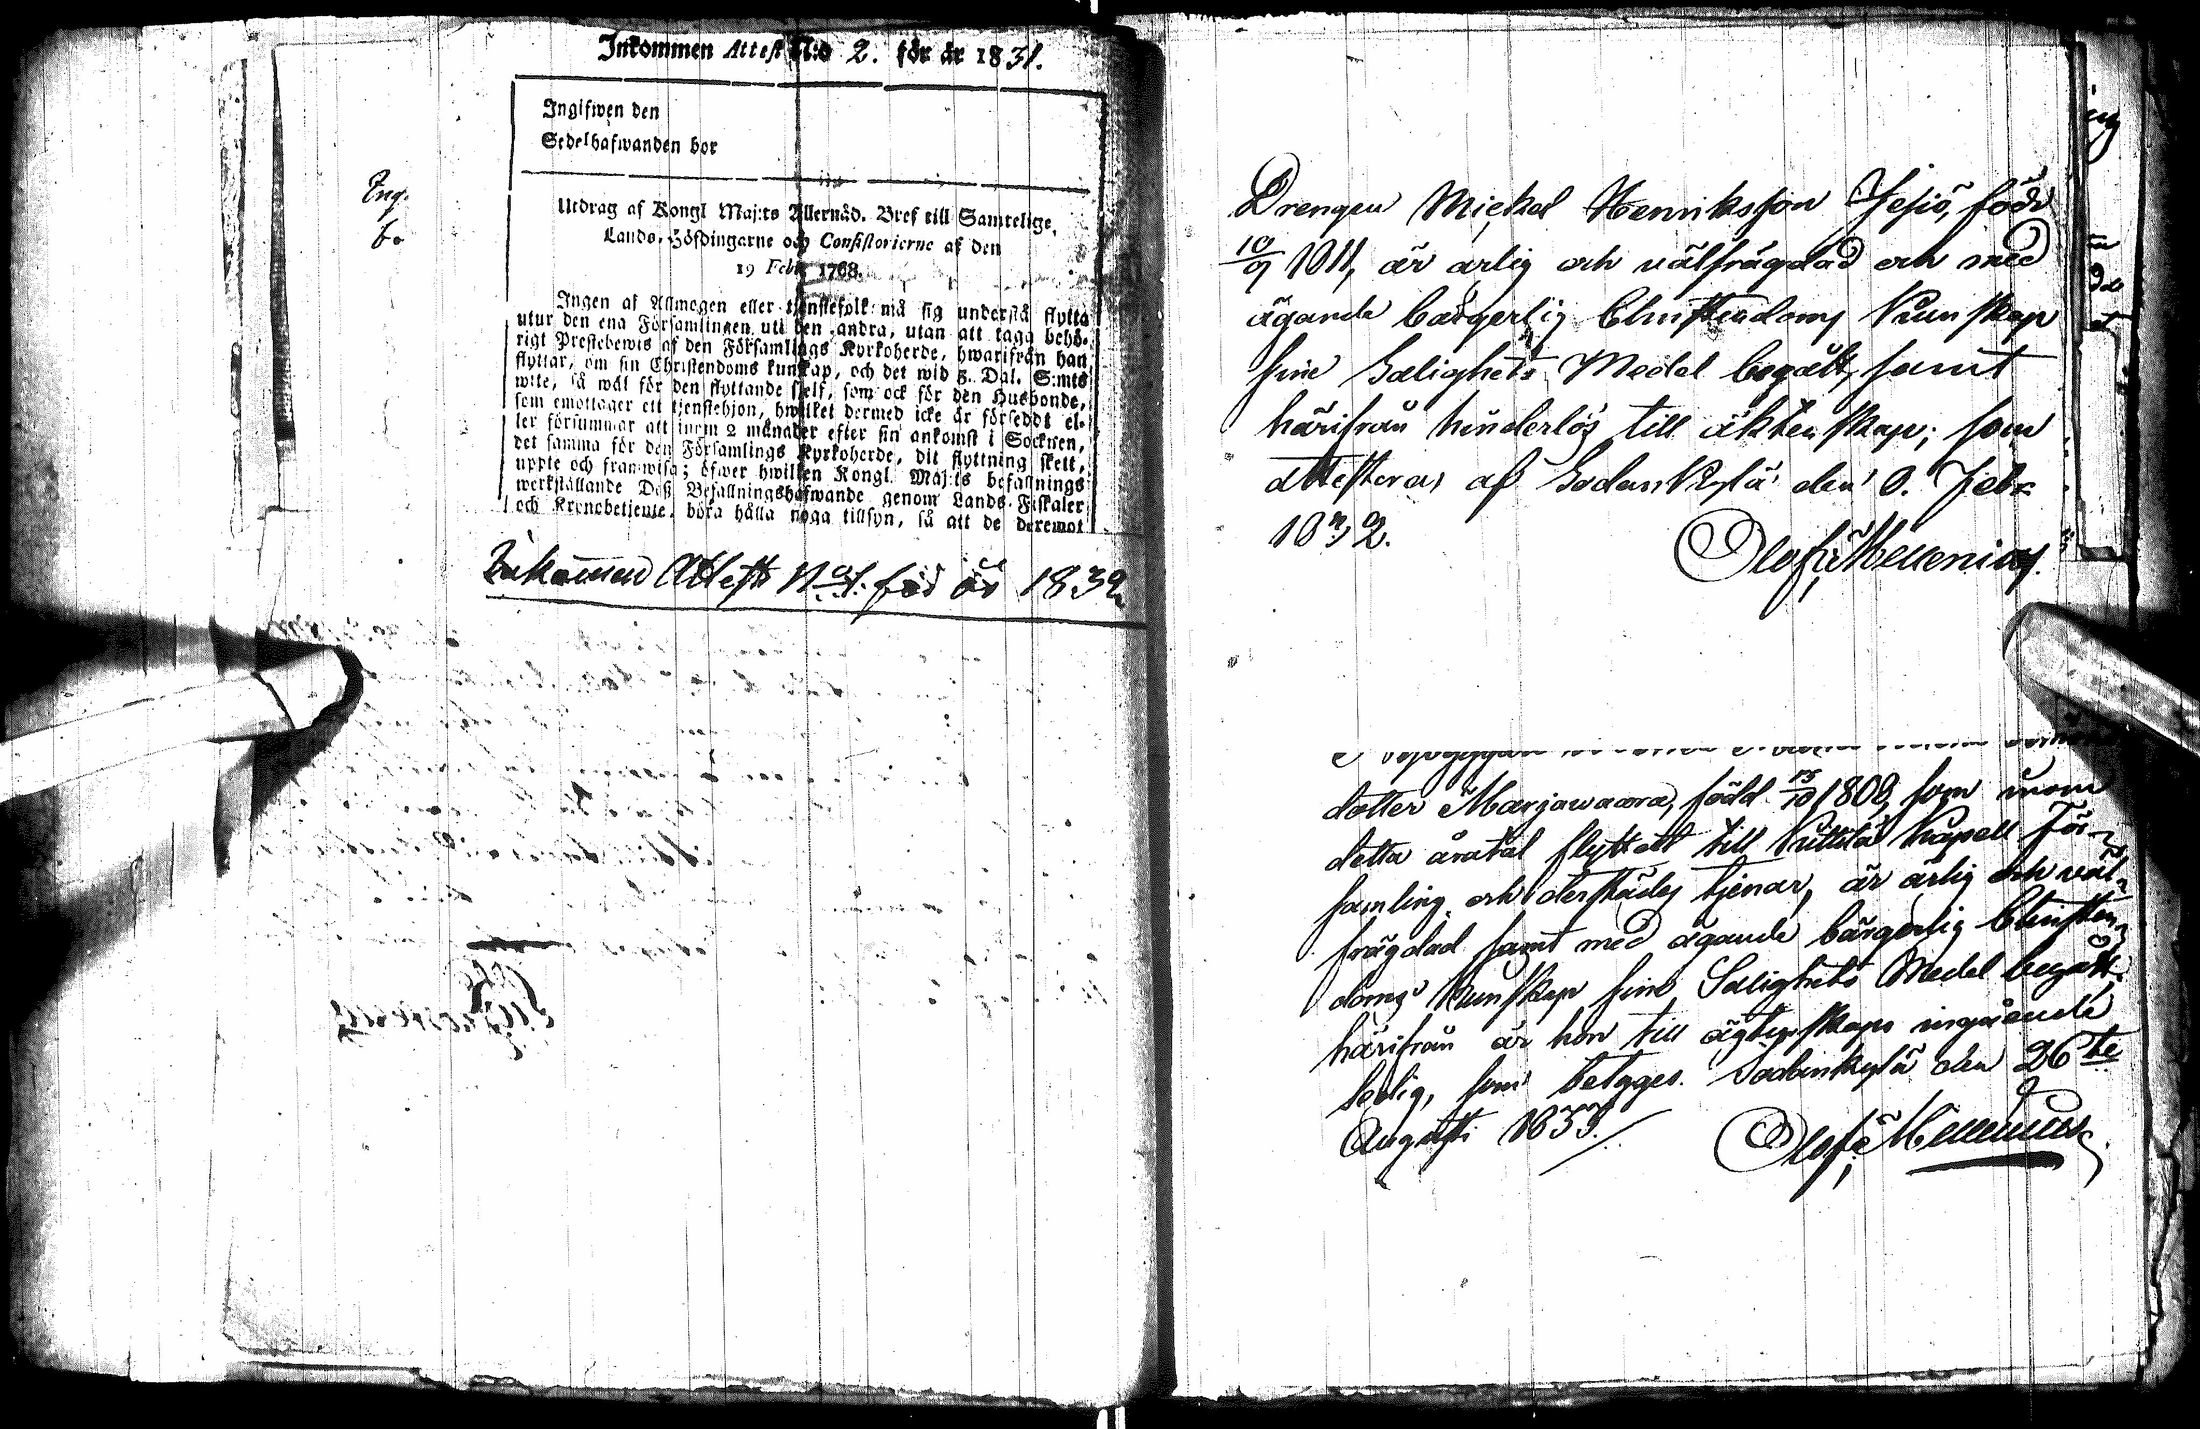 Inkommen Attest N:o 2. för år 1831.
Ingifwen den
Sedelhafwanden bor
Utdrag af Kongl Maj:ts Allernåd. Bref till Samtelige,
Lands-Höfdingarne och Consistorierne af den
19 Febr. 1768.
Ingen af Allmogen eller tjenstefolk må sig understå flytta
utur den ena Församlingen uti den andra, utan att taga behö-
rigt Prestebewis af den Församlings Kyrkoherde, hwarifrån han
flyttar, om sin Christendoms kunskap, och det wid 3. Dal. S:mts
wite, så wäl för den flyttande sjelf, som ock för den Husbonde,
som emottager ett tjenstehjon, hwilket dermed icke är förseddt el-
ler försummar att inom 2 månader efter sin ankomst i Socknen,
det samma för den Församlings Kyrkoherde, dit flyttning skett,
uppte och framwisa; öfwer hwilken Kongl. Maj:ts befallnings
werkställande Dess Befallningshafwande genom Lands-Fiskaler
och Kronobetjente, böra hålla noga tillsyn, så att de deremot
Ing.
b.
Inkommen Attest No 1. för år 1832
Drengen Mickel Henriksson Jesiö, född
10/9 1811, är ärlig och välfrägdad och med
ägande bärgerlig Christendoms Kunskap
sine Salighets Medel begått, samt
härifrån hinderlös till äktenskap; som
attesteras af Sodankylä den 8. Febr
1832.
Olof Mellenius.
dotter Marjawaara, född 15/10 1808, som inom
detta åratal flyttatt till Kittilä Kapell För-
samling och derstädes tjenar, är ärlig och väl-
frägdad samt med ägande bärgerlig Christen-
doms Kunskap sine Salighets Medel begått.
härifrån är hon till ägtenskaps ingående
ledig, som betyges. Sodankylä den 26te
Augusti 1833.
Olof Mellenius